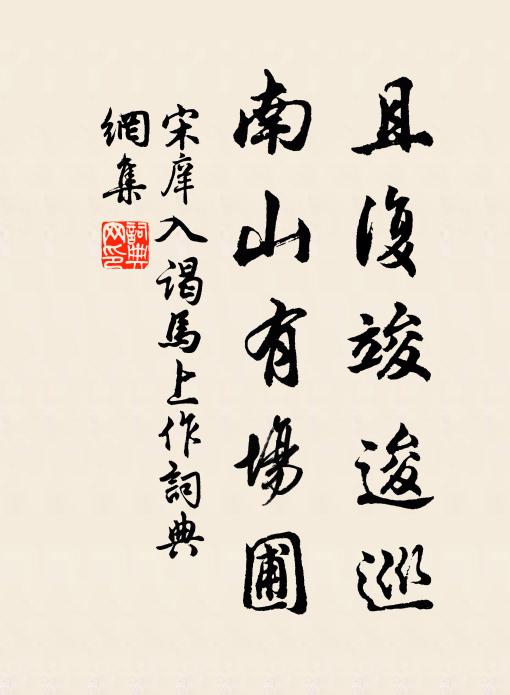 且復竣逡巡
南山有場圃
宋庠入謁馬上作詞典
網集
詞典网印